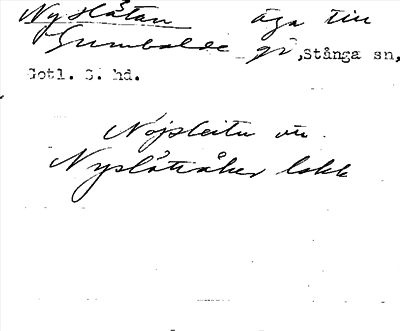 Nyslåtan äga till
Gumbalde gd, Stånga sn,
Gotl. S. hd.
Nojsleitu
Nyslåttåker lokk